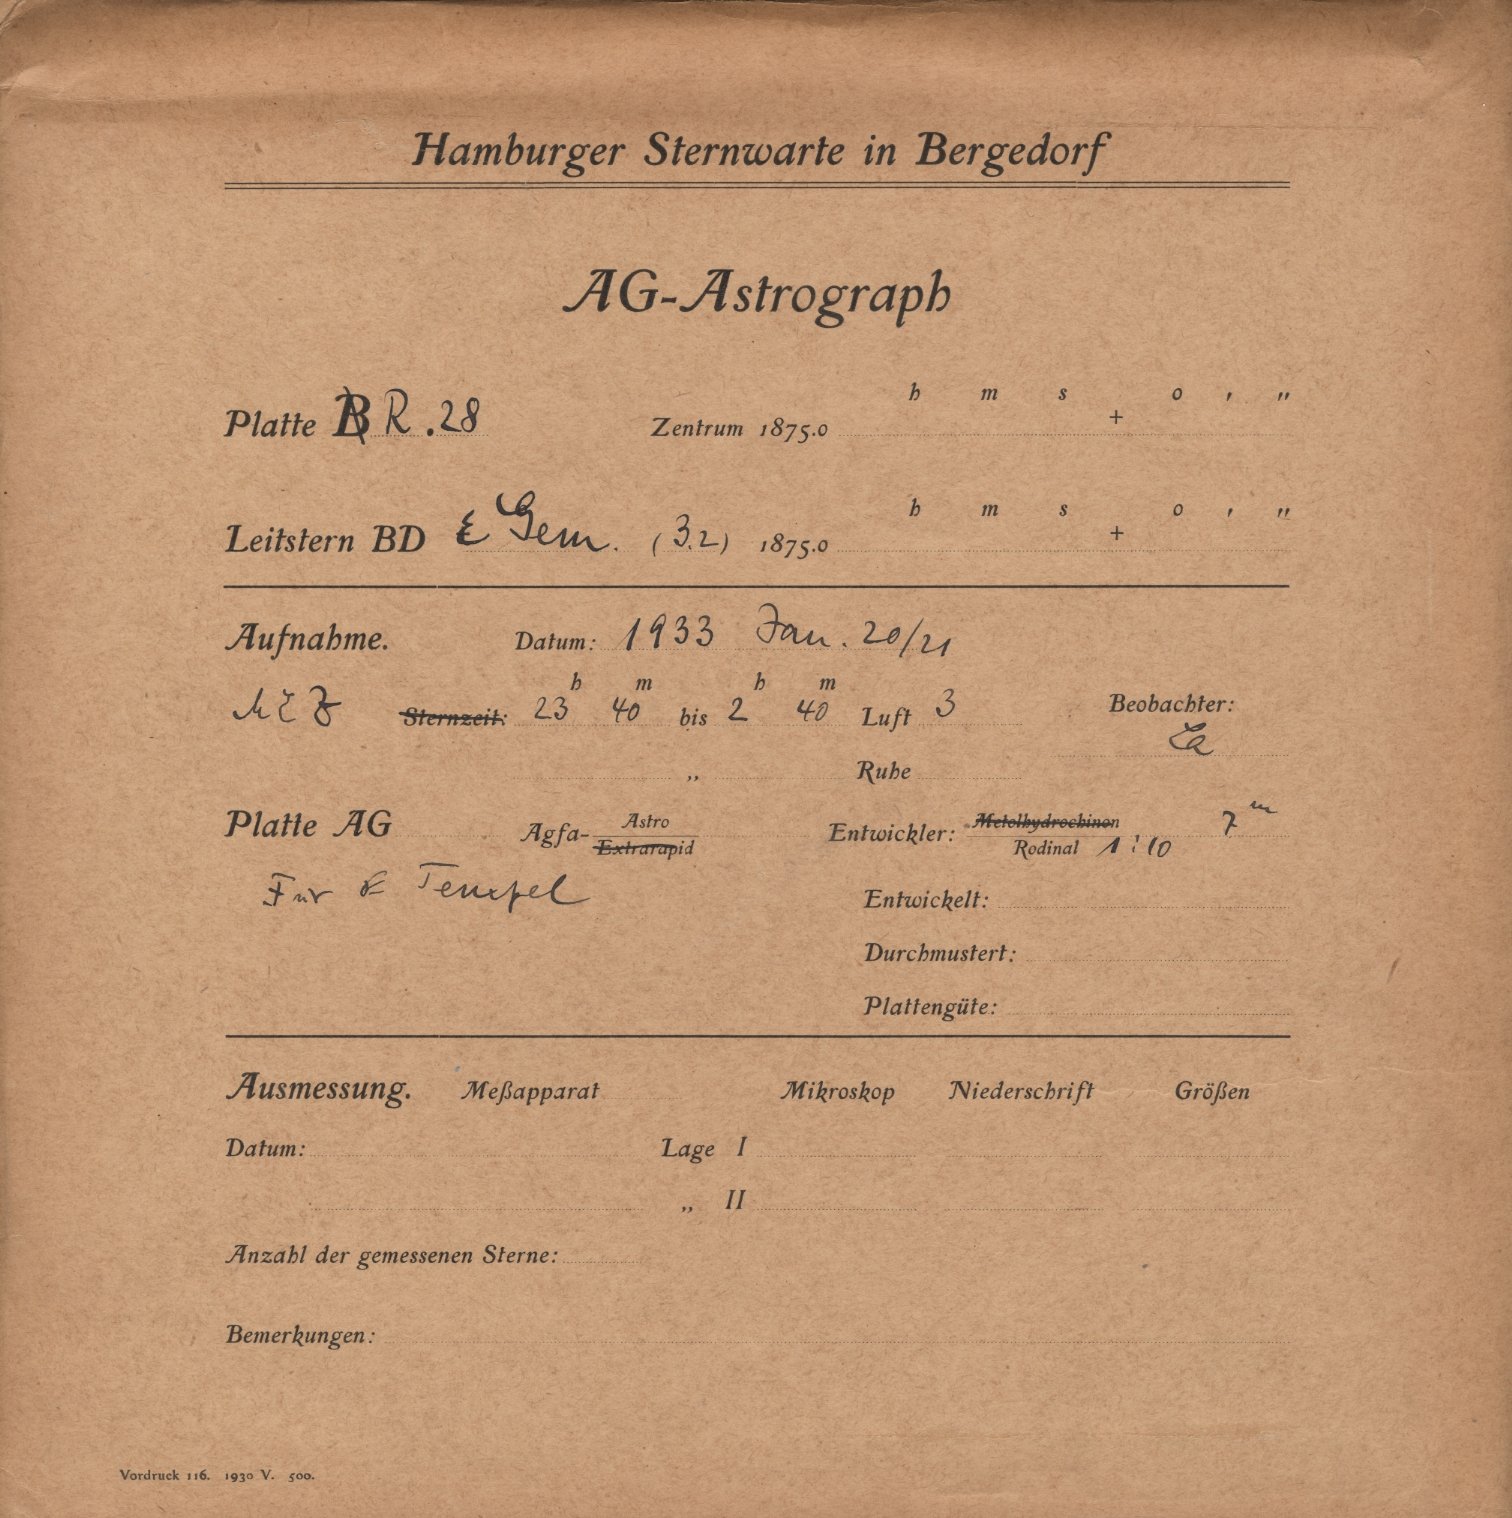 Hamburger Sternwarte in Bergedorf
AG-Astrograph
h m s o , „
Platte B R .28 Zentrum 1875.0 +
h m s o , „
Leitstern BD ε Gem. (3.2) 1875.0 +
Aufnahme. Datum: 1933 Jan. 20/21
h m h m
MEZ Sternzeit: 23 40 bis 2 40 Luft 3 Beobachter:
„ Ruhe
Platte AG Agfa- Astro Extrarapid Entwickler: Metolhydrochinon Rodinal 1:10 7 m
Für Tempel
Entwickelt:
Durchmustert:
Plattengüte:
Ausmessung. Meßapparat Mikroskop Niederschrift Größen
Datum: Lage I
„ II
Anzahl der gemessenen Sterne:
Bemerkungen:
Vordruck 116. 1930 V. 500.